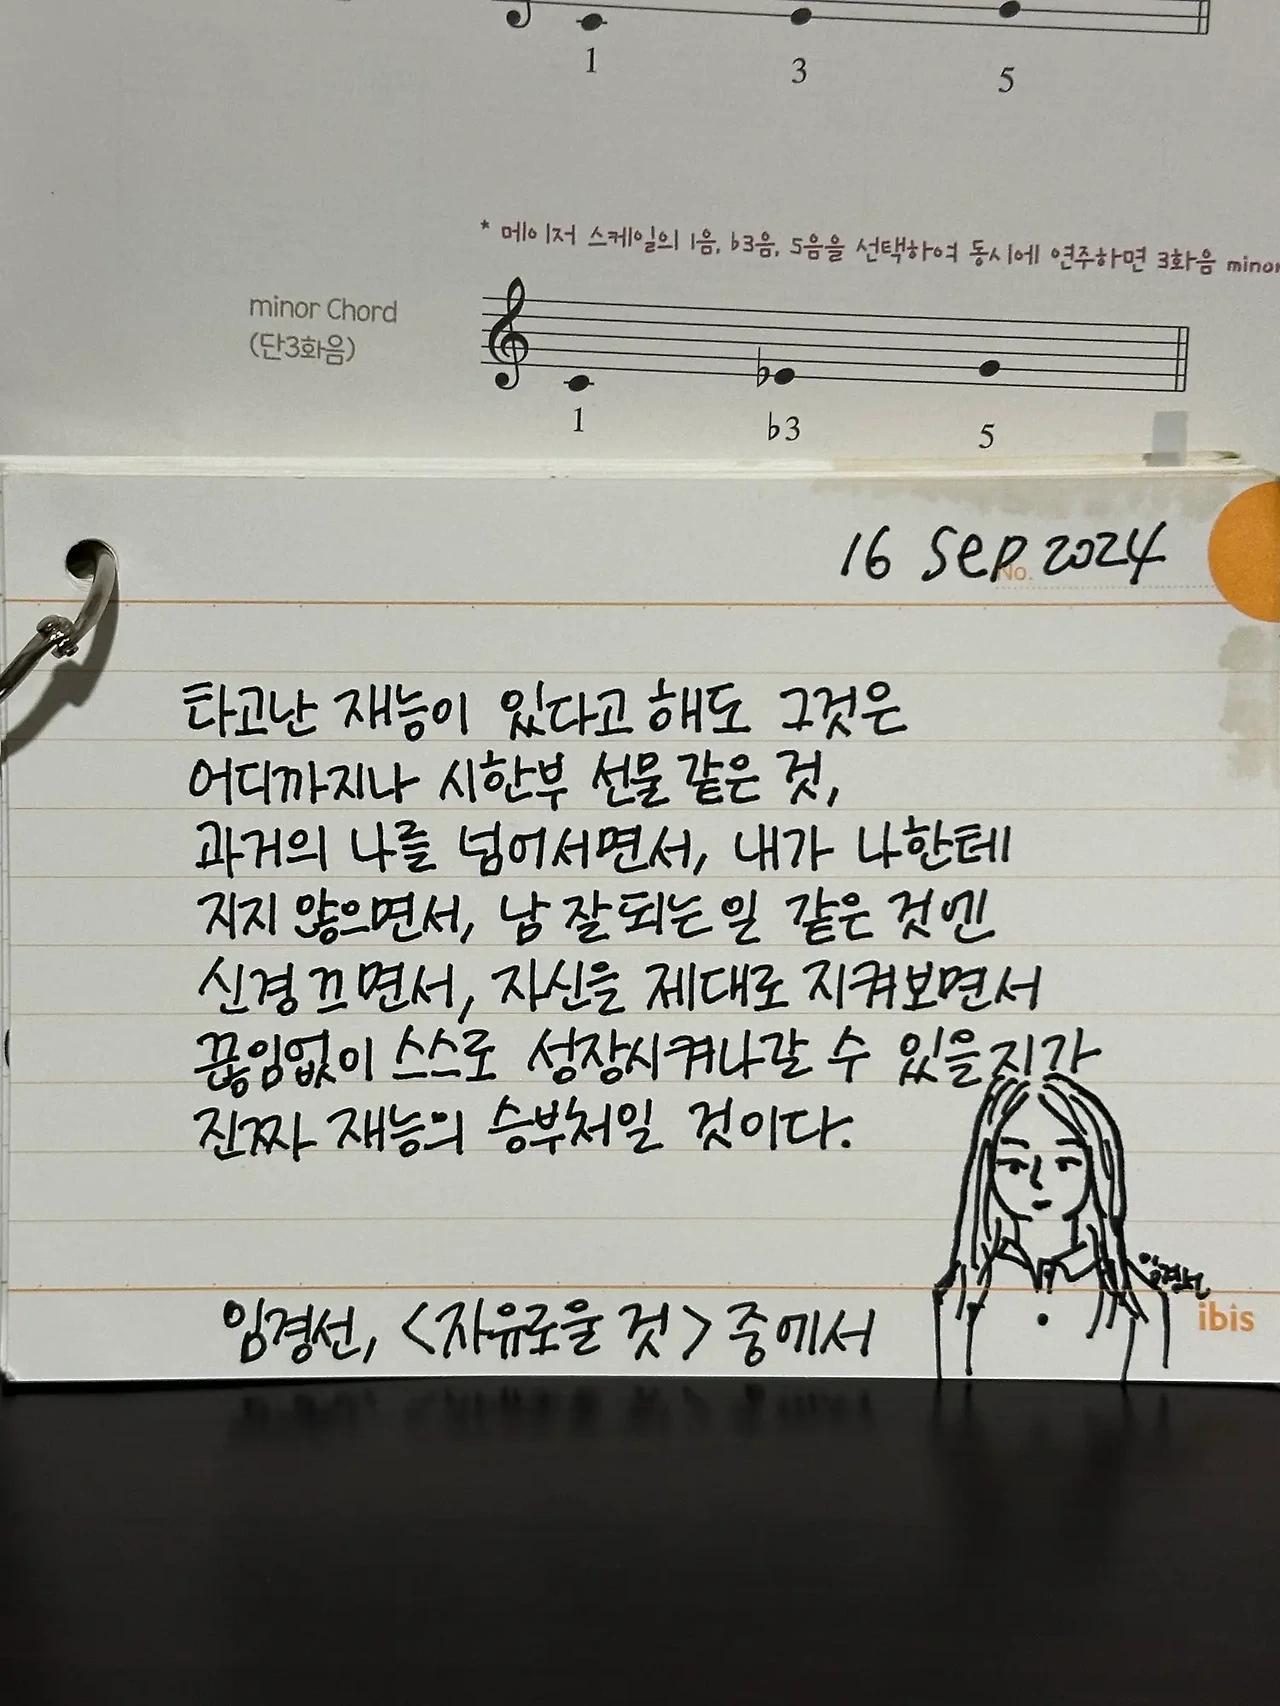 1 3 5
* 메이저 스케일의 1음, ♭3음, 5음을 선택하여 동시에 연주하면 3화음 minor
minor Chord
(단3화음)
1 ♭3 5
16 Sep 2024
No.
타고난 재능이 있다고 해도 그것은
어디까지나 시한부 선물 같은 것,
과거의 나를 넘어서면서, 내가 나한테
지지 않으면서, 남 잘되는 일 같은 것엔
신경 끄면서, 자신을 제대로 지켜보면서
끊임없이 스스로 성장시켜나갈 수 있을지가
진짜 재능의 승부처일 것이다.
임경선
ibis
임경선, <자유로울 것> 중에서